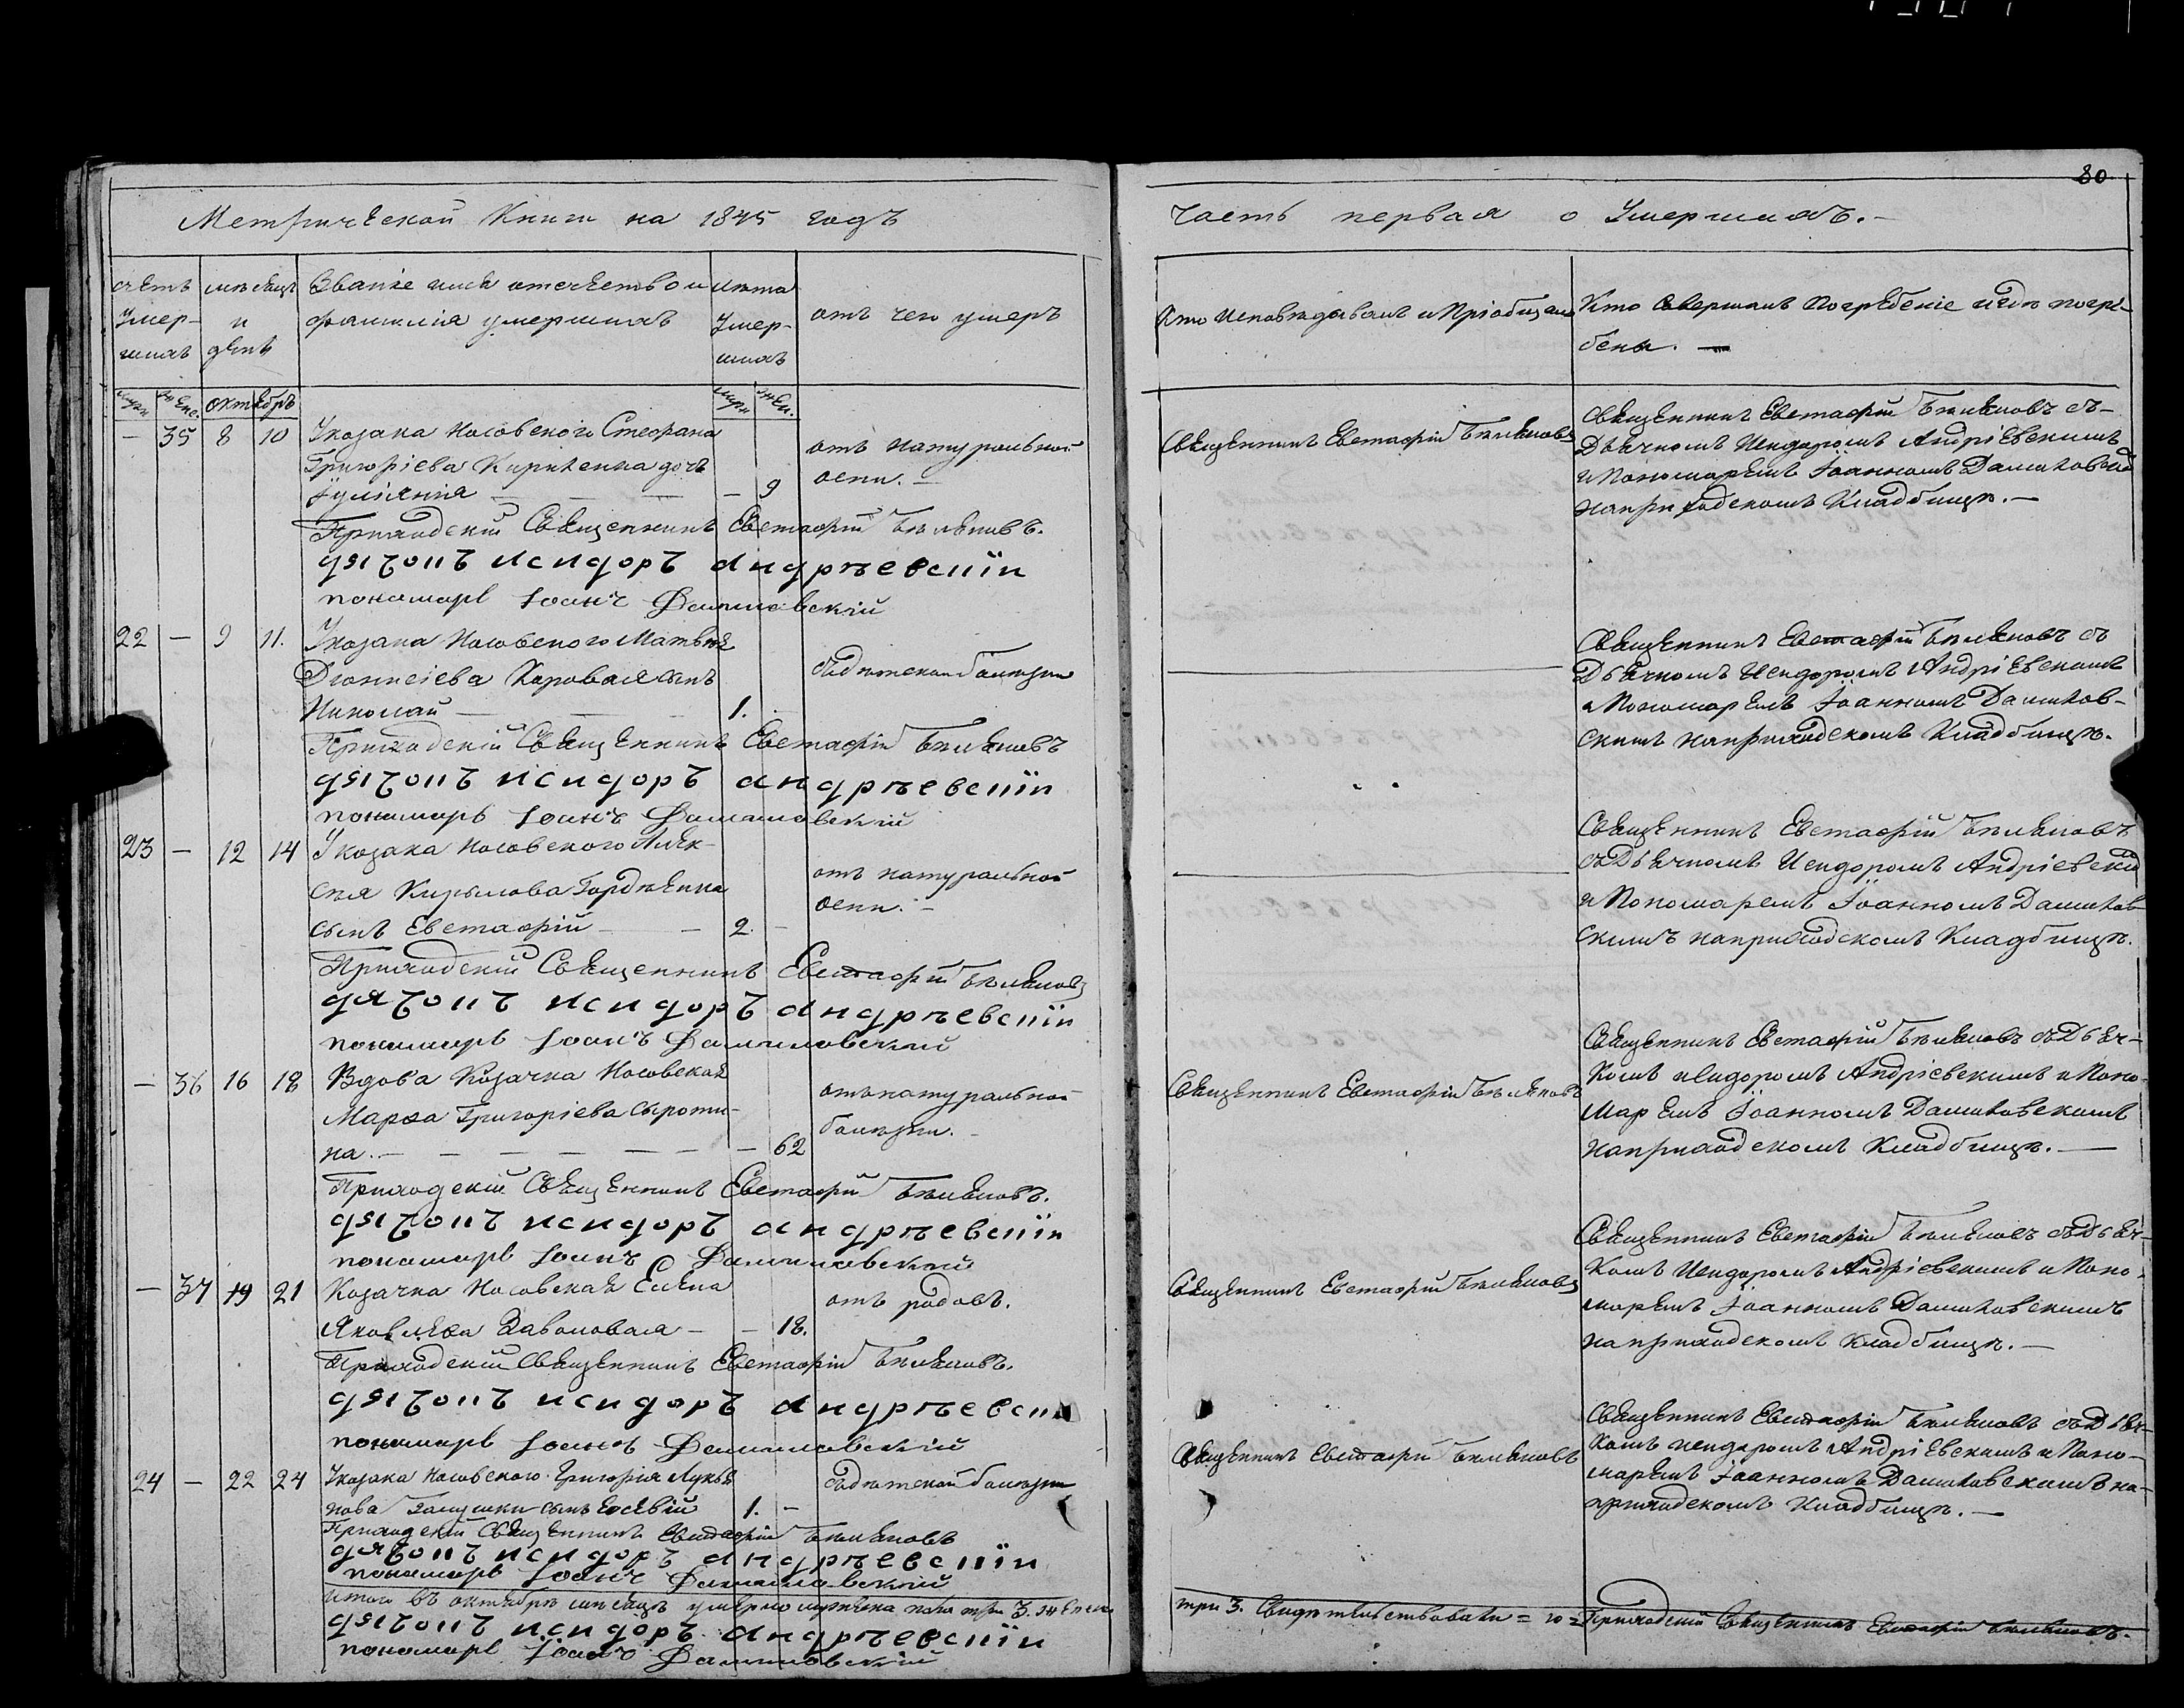 80
Метрической Книги на 1845 годъ
часть первая о Умершихъ.-
счетъ Умер-шихъ
мѣсяцъ и день
Званіе имя отечетво и фамилія умершихъ
лѣта Умер-шихъ
отъ чего умеръ
Кто исповѣдывалъ и Пріобщалъ
Кто Совершалъ Погребеніе и гдѣ погре-
бены. —
муж. жен. октябръ муж. жен.
— 35 8 10 Укозака Носовского Стефана
Григоріева Кириченка дочь
Іуліянія — — — 9
отъ натуральной
оспи. —
Священникъ Евстафій Бѣляновъ
Священникъ Евстафій Бѣляновъ съ-
Дьячкомъ Исидоромъ Андріевскимъ
и Пономаремъ Іоанномъ Дашковскимъ
наприходскомъ Кладбищѣ. —
Приходскій Священникъ Евстафій Бѣляновъ.
дячокъ исидоръ андрѣевскій
пономарь Іоанъ Дашковскій
22 — 9 11. Укозака Носовского Матвея
Діонисіева Коровая сынъ
Николай — 1.
Содѣтской болезни
Священникъ Евстафій Бѣляновъ съ
Дьячкомъ Исидоромъ Андріевскимъ
и Пономаремъ Іоанномъ Дашков-
скимъ наприходскомъ Кладбищѣ.
Приходскій Священникъ Евстафій Бѣляновъ
дячокъ исидоръ андрѣевскій
пономарь Іоанъ Дашковскій
23 — 12 14 Укозака Носовского Алек-
сѣя Кирылова Гордѣенка
сынъ Евстафій — — 2. -
отъ натуральной
оспи. —
Священникъ Евстафій Бѣляновъ
съ Дьячкомъ Исидоромъ Андріевскимъ
и Пономаремъ Іоанномъ Дашков
скимъ наприходскомъ Кладбищѣ.
Приходскій Священникъ Евстафій Бѣляновъ
дячокъ исидоръ андрѣевскій
пономарь Іоанъ Дашковскій
— 36 16 18 Вдова Козачка Носовская
Марфа Григоріева Сыроти-
на. — — — 62
отънатуральной
болѣзни. —
Священникъ Евстафій Бѣляновъ
Священникъ Евстафій Бѣляновъ съ Дьяч-
комъ исидоромъ Андріевскимъ и Поно-
маремъ Іоанномъ Дашковскимъ
наприходскомъ Кладбищѣ. —
Приходскій Священникъ Евстафій Бѣляновъ.
дячокъ исидоръ андрѣевскій
пономарь Іоанъ Дашковскій
— 37 19 21 Козачка Носовская Елена
Яковлева — — 18.
отъ родовъ.
Священникъ Евстафій Бѣляновъ
Священникъ Евстафій Бѣляновъ съ Дьяч-
комъ Исидоромъ Андріевскимъ и Поно-
маремъ Іоанномъ Дашковскимъ
наприходскомъ Кладбищѣ. —
Приходскій Священникъ Евстафій Бѣляновъ.
дячокъ исидоръ андрѣевскій
пономарь Іоанъ Дашковскій
24 — 22 24 Укозака Носовского Григорія Лукья
нова Галушки сынъ 1. -
Содѣтской болезни
Священникъ Евстафій Бѣляновъ
Священникъ Евстафій Бѣляновъ съ Дьяч-
комъ исидоромъ Андріевскимъ и Поно-
маремъ Іоанномъ Дашковскимъ на-
приходскомъ Кладбищѣ. —
Приходскій Священникъ Евстафій Бѣляновъ
дячокъ исидоръ андрѣевскій
пономарь Іоанъ Дашковскій
Итого въ октябрѣ мѣсяцѣ умерло мужеска пола три 3. женск
три 3. Свидѣтельствовали = Приходскій Священникъ Евстафій Бѣляновъ.
дячокъ исидоръ андрѣевскій
пономарь Іоанъ Дашковскій